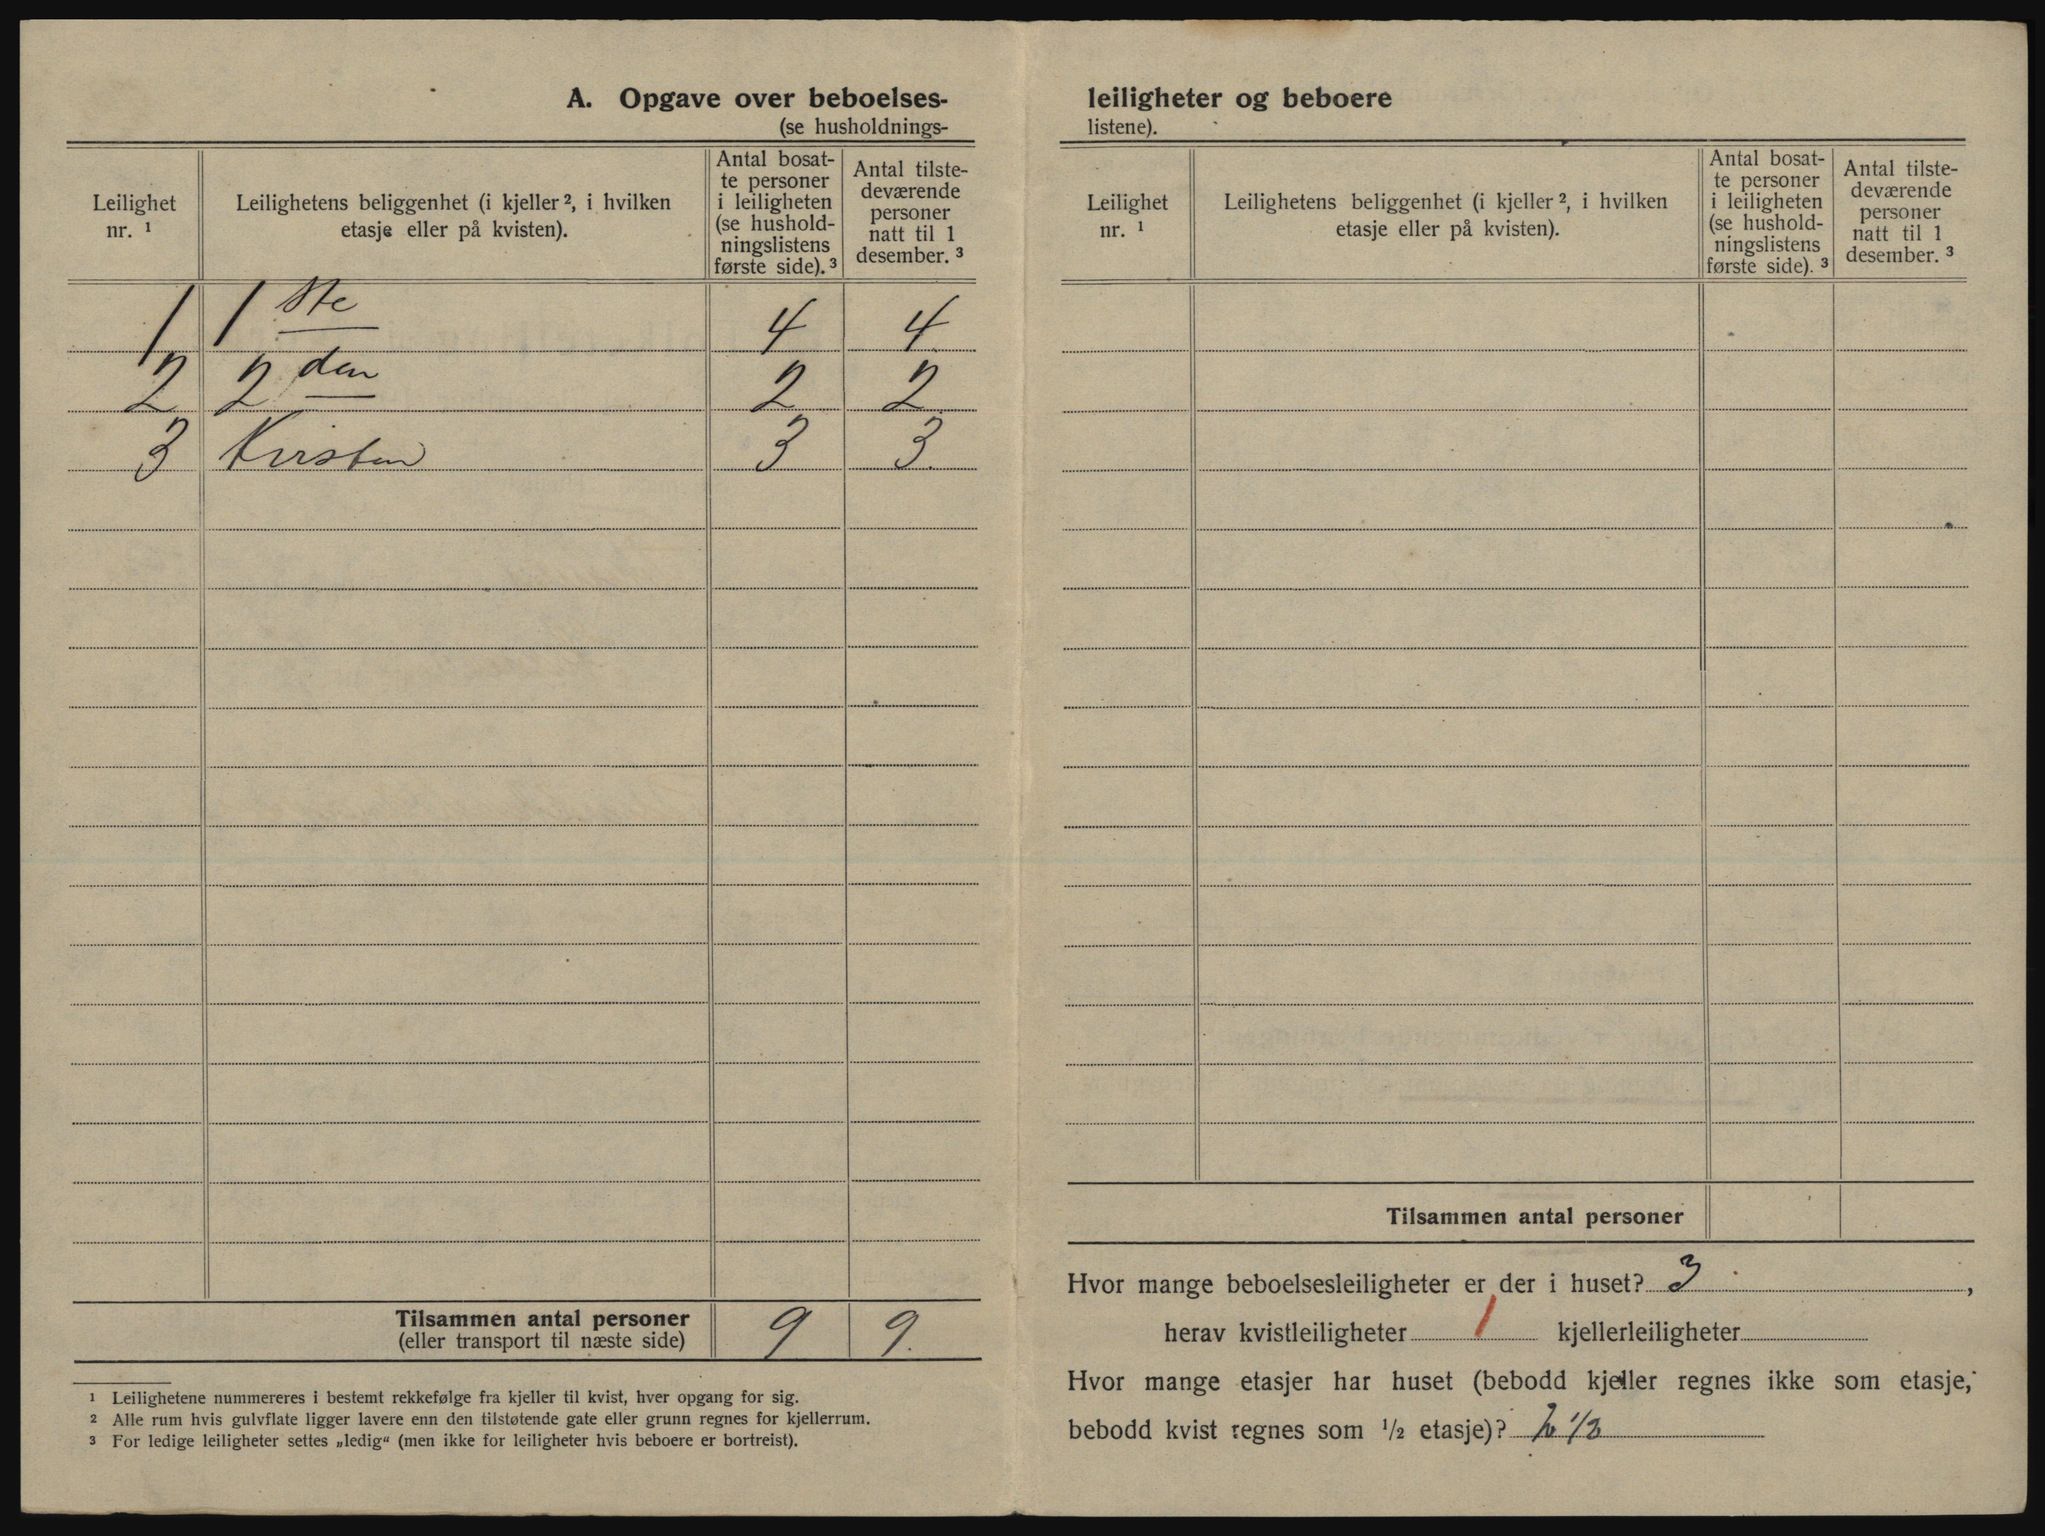 A. Opgave over beboelses-
(se husholdnings-
Leilighet
nr. ¹
Leilighetens beliggenhet (i kjeller ², i hvilken
etasje eller på kvisten).
Antal bosat-
te personer
i leiligheten
(se hushold-
ningslistens
første side). ³
Antal tilste-
deværende
personer
natt til 1
desember. ³
1 1 ste 4 4
2 2 den 2 2
3 Kvisten 3 3.
Tilsammen antal personer 9 9.
(eller transport til næste side)
¹ Leilighetene nummereres i bestemt rekkefølge fra kjeller til kvist, hver opgang for sig.
² Alle rum hvis gulvflate ligger lavere enn den tilstøtende gate eller grunn regnes for kjellerrum.
³ For ledige leiligheter settes „ledig“ (men ikke for leiligheter hvis beboere er bortreist).
leiligheter og beboere
listene).
Leilighet
nr. ¹
Leilighetens beliggenhet (i kjeller ², i hvilken
etasje eller på kvisten).
Antal bosat-
te personer
i leiligheten
(se hushold-
ningslistens
første side). ³
Antal tilste-
deværende
personer
natt til 1
desember. ³
Tilsammen antal personer
Hvor mange beboelsesleiligheter er der i huset? 3,
herav kvistleiligheter 1 kjellerleiligheter
Hvor mange etasjer har huset (bebodd kjeller regnes ikke som etasje,
bebodd kvist regnes som ½ etasje)? 2 ½